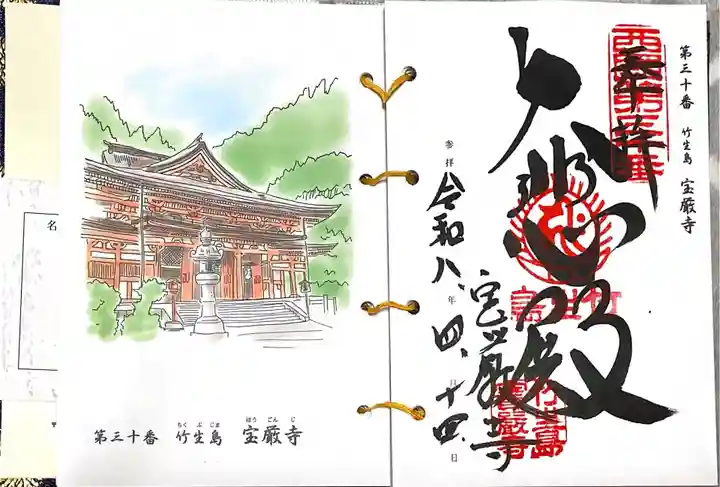 第三十番 竹生島 宝厳寺
ちくぶじま ほうごんじ
第三十番 竹生島 宝厳寺
奉拝
大悲殿
宝厳寺
参拝 令和八年四月十四日
名